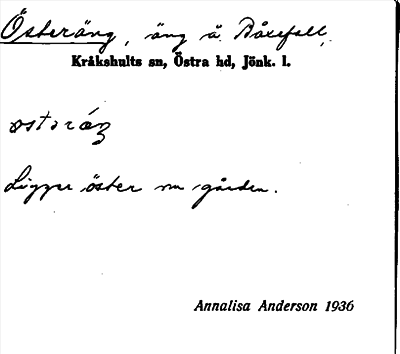 Österäng, äng å Båxefall.
Kråkshults sn, Östra hd, Jönk. l.
Ligger öster om gården.
Annalisa Anderson 1936